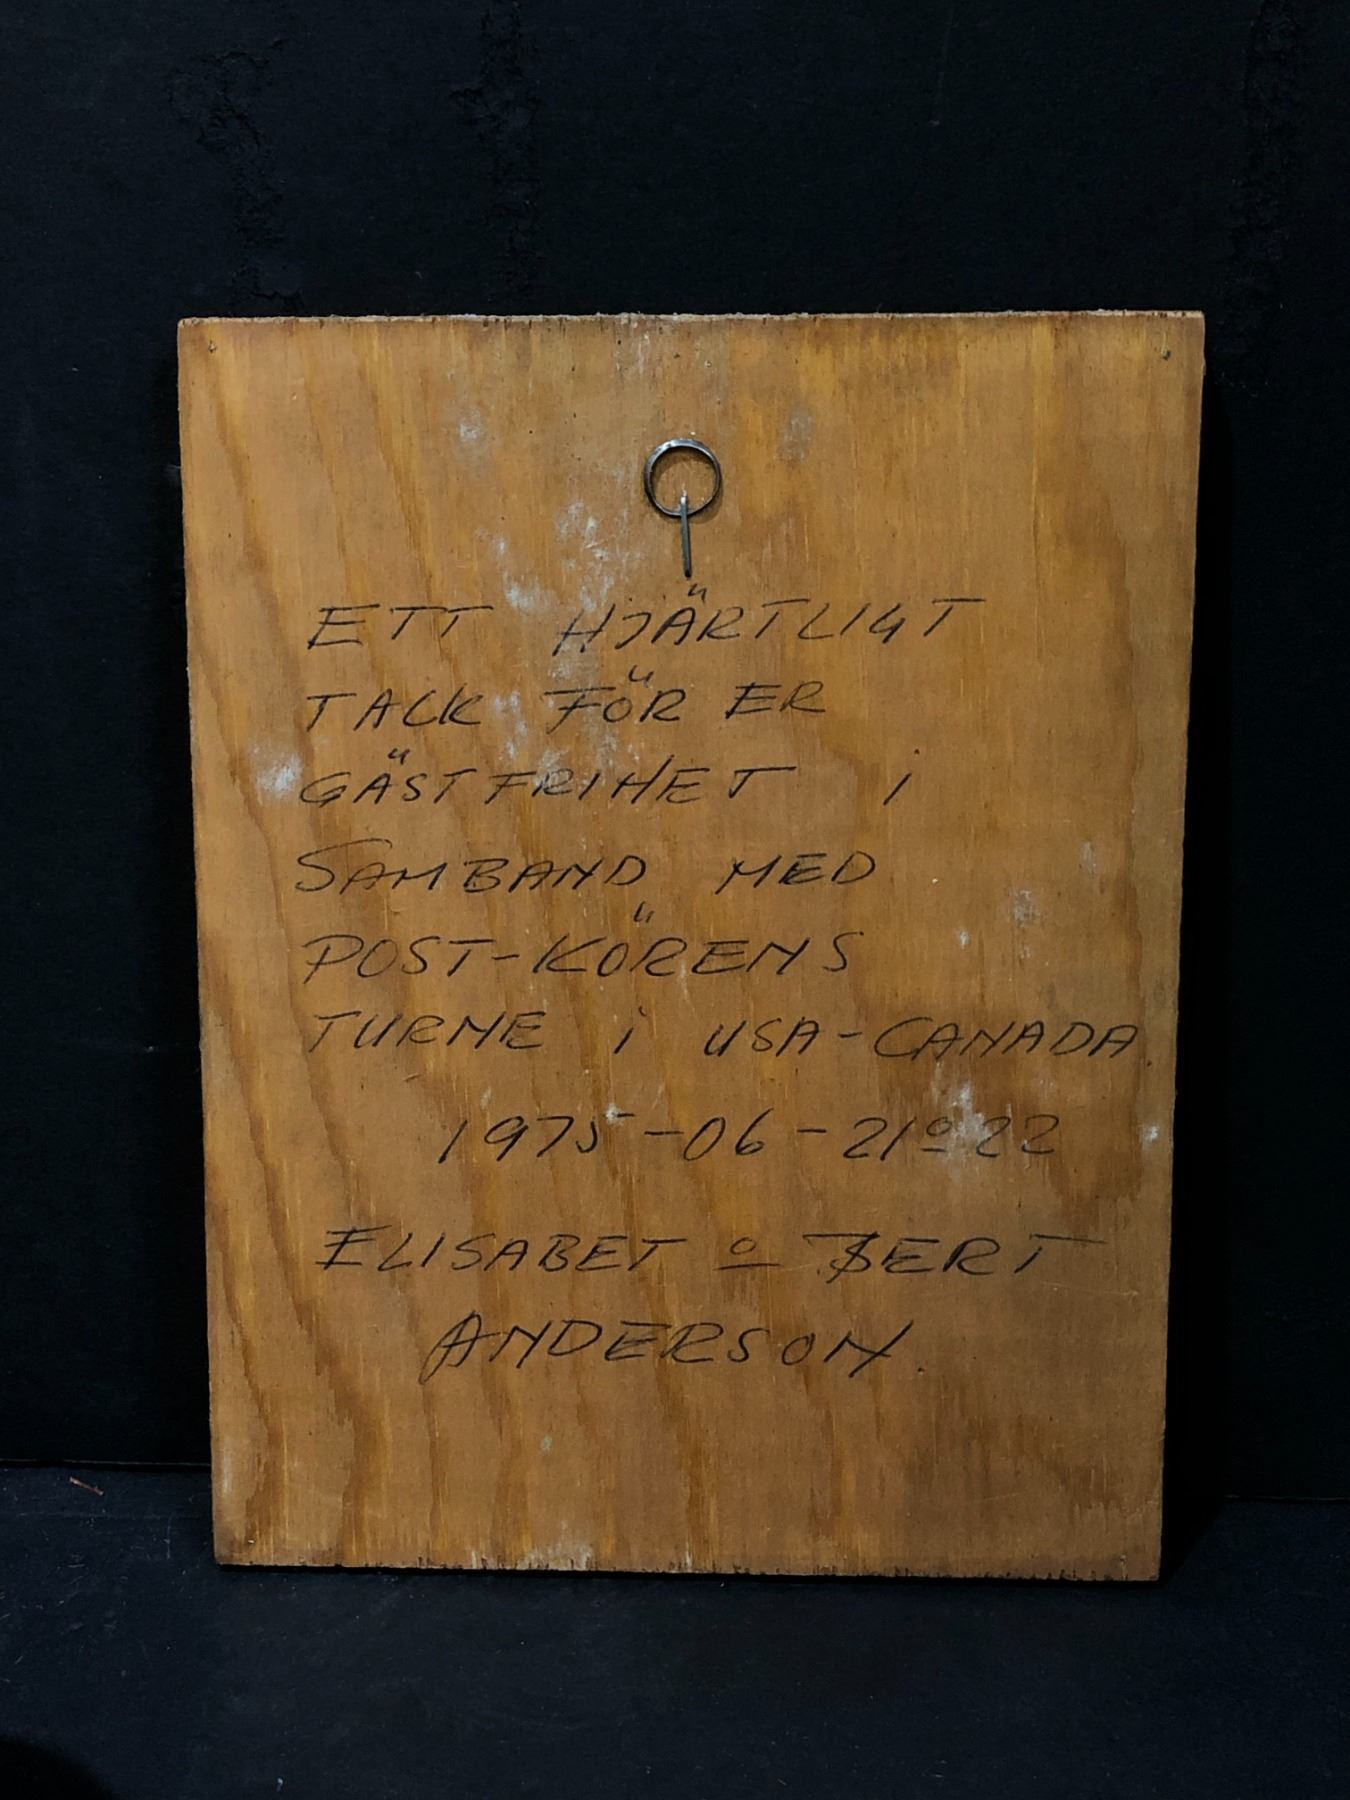 ETT HJÄRTLIGT
TACK FÖR ER
GÄSTFRIHET i
SAMBAND MED
POST-KÖRENS
TURNE i USA-CANADA
1975-06-21 o 22
ELISABET o BERT
ANDERSON.